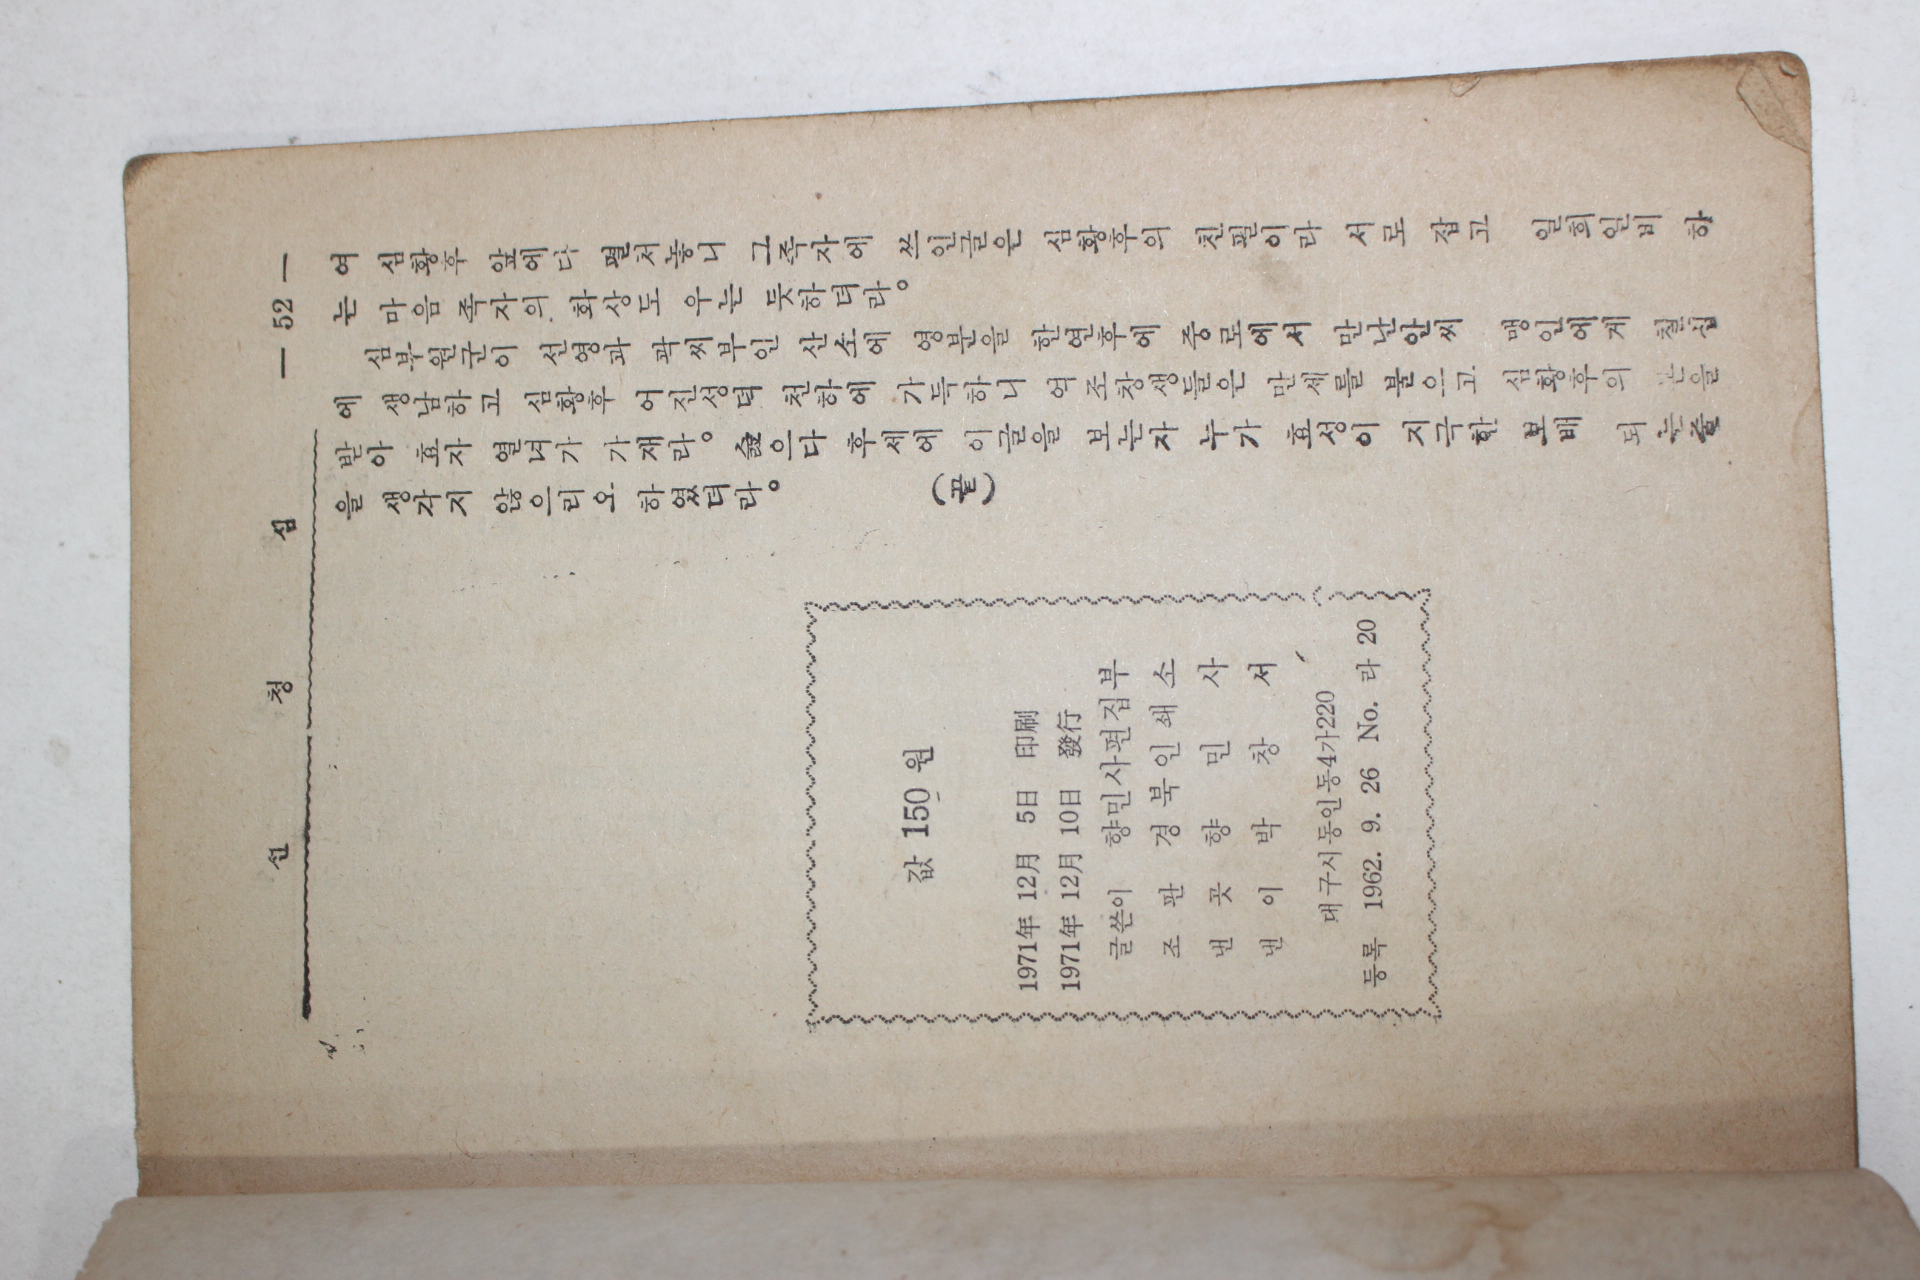 — 52 —
심청선
여 심황후 앞에다 펼처놓니 그족자에 쓰인글은 심황후의 친필이라 서로 잡고 일희일비 하
는 마음 족자의 화상도 우는 듯하더라。
심부원군이 선영과 곽씨부인 산소에 영분을 한연후에 중로에서 만난안씨 맹인에게 칠십
에 생남하고 심황후 어진성덕 천하에 가득하니 억조창생들은 만세를 불으고 심황후의
받아 효자 열녀가 가재라。 슲으다 후세에 이글을 보는자 누가 효성이 지극한 보배 되는줄
을 생각지 않으리오 하였더라。
(끝)
값 150 원
1971年 12月 5日 印刷
1971年 12月 10日 發行
글쓴이 향민사편집부
조판 경북인쇄소
낸곳 향민사
낸이 박창서
대구시동인동4가220
등록 1962. 9. 26 No. 라 20